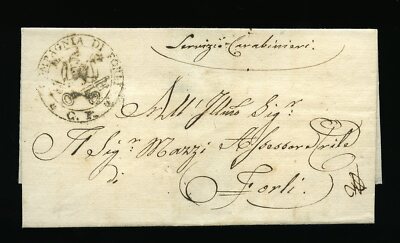 COMPAGNIA DI FORLI
G. P.
Servizio Carabinieri.
All' Illmo Sigr.
Il Sigr. Mazzi Assessore Civile
di
Forlì.